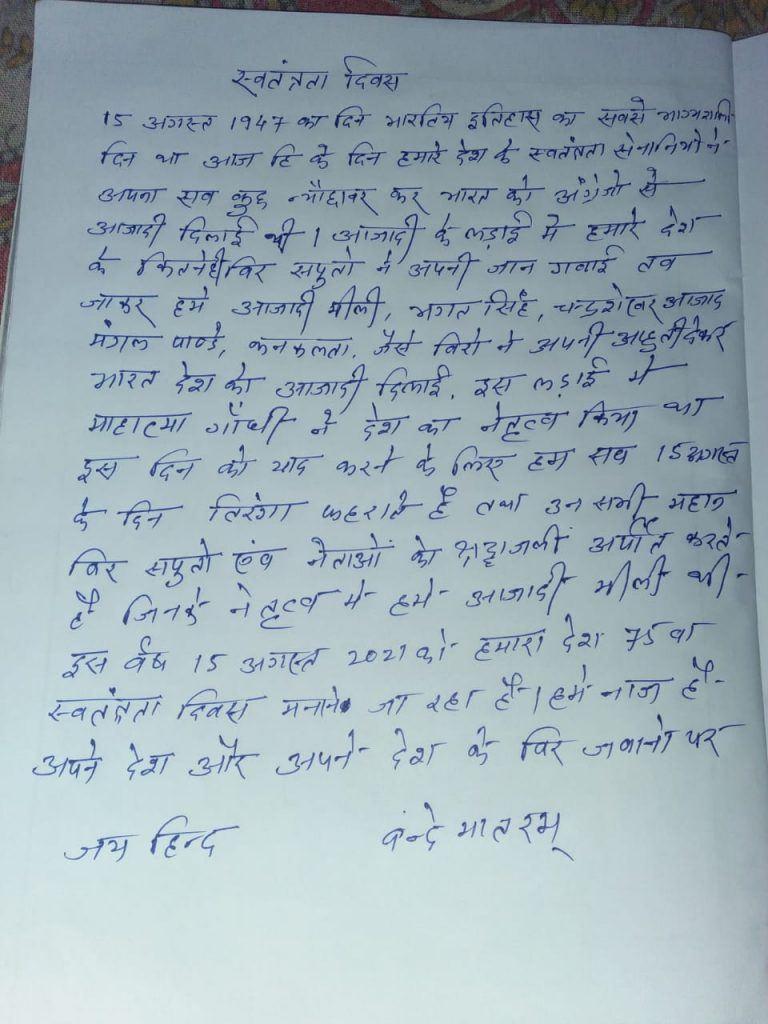 स्वतंत्रता दिवस
15 अगस्त 1947 का दिन भारतिय इतिहास का सबसे भाग्यशाली
दिन था आज हि के दिन हमारे देश के स्वतंत्रता सेनानियो ने
अपना सब कुछ न्यौछावर कर भारत को अंग्रेजो से
आजादी दिलाई थी । आजादी के लड़ाई मे हमारे देश
के कितनेही विर सपुतो ने अपनी जान गवाई तब
जाकर हमे आजादी मीली, भगत सिंह, चन्द्रशेखर आजाद
मंगल पाण्डे, कनकलता, जैसे विरो ने अपनी आहुती देकर
भारत देश को आजादी दिलाई, इस लड़ाई मे
माहात्मा गाँधी ने देश का नेतृत्व किया था
इस दिन को याद करने के लिए हम सब 15 अगस्त
के दिन तिरंगा फहराते है तथा उन सभी महान
विर सपुतो एंव नेताओं को श्रद्धाजली अर्पीत करते
है जिनके नेतृत्व मे हमे आजादी मीली थी
इस र्वष 15 अगस्त 2021 को हमारा देश 75 वा
स्वतंत्रता दिवस मनाने जा रहा है । हमे नाज है
अपने देश और अपने देश के विर जवानो पर
जय हिन्द वन्दे मातरम्